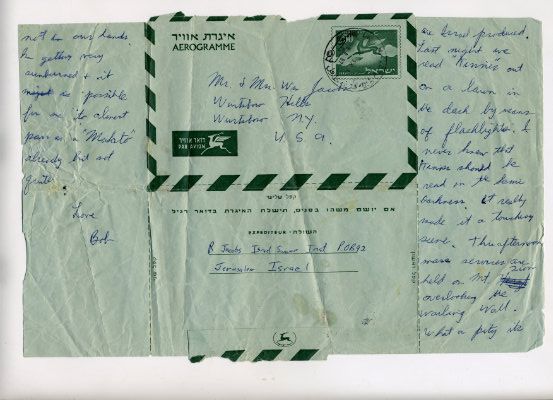 are being produced.
Last night we
read "Kinnos" out
on a lawn in
the dark by means
of flashlights. I
never knew that
Kinnos should be
read in the semi
darkness. It really
made it a touching
scene. This afternoon
mass services are
held on Mt. Zion
overlooking the
wailing wall.
What a pity it's
not in our hands
I'm getting very
sunburned & it
might be possible
for me to almost
pass as a
already but not
quite.
Love
Bob
איגרת אוויר
AEROGRAMME
ישראל
Mr. & Mrs. Wm Jacobs
Wurtsboro Hills
Wurtsboro N.Y.
U. S. A.
דואר אוויר
PAR AVION
קפל שלישי
אם יושם משהו בפנים, תישלח האיגרת בדואר רגיל
השולח: EXPEDITEUR
R Jacobs Isrd Inst POB92
Jerusalem Israel